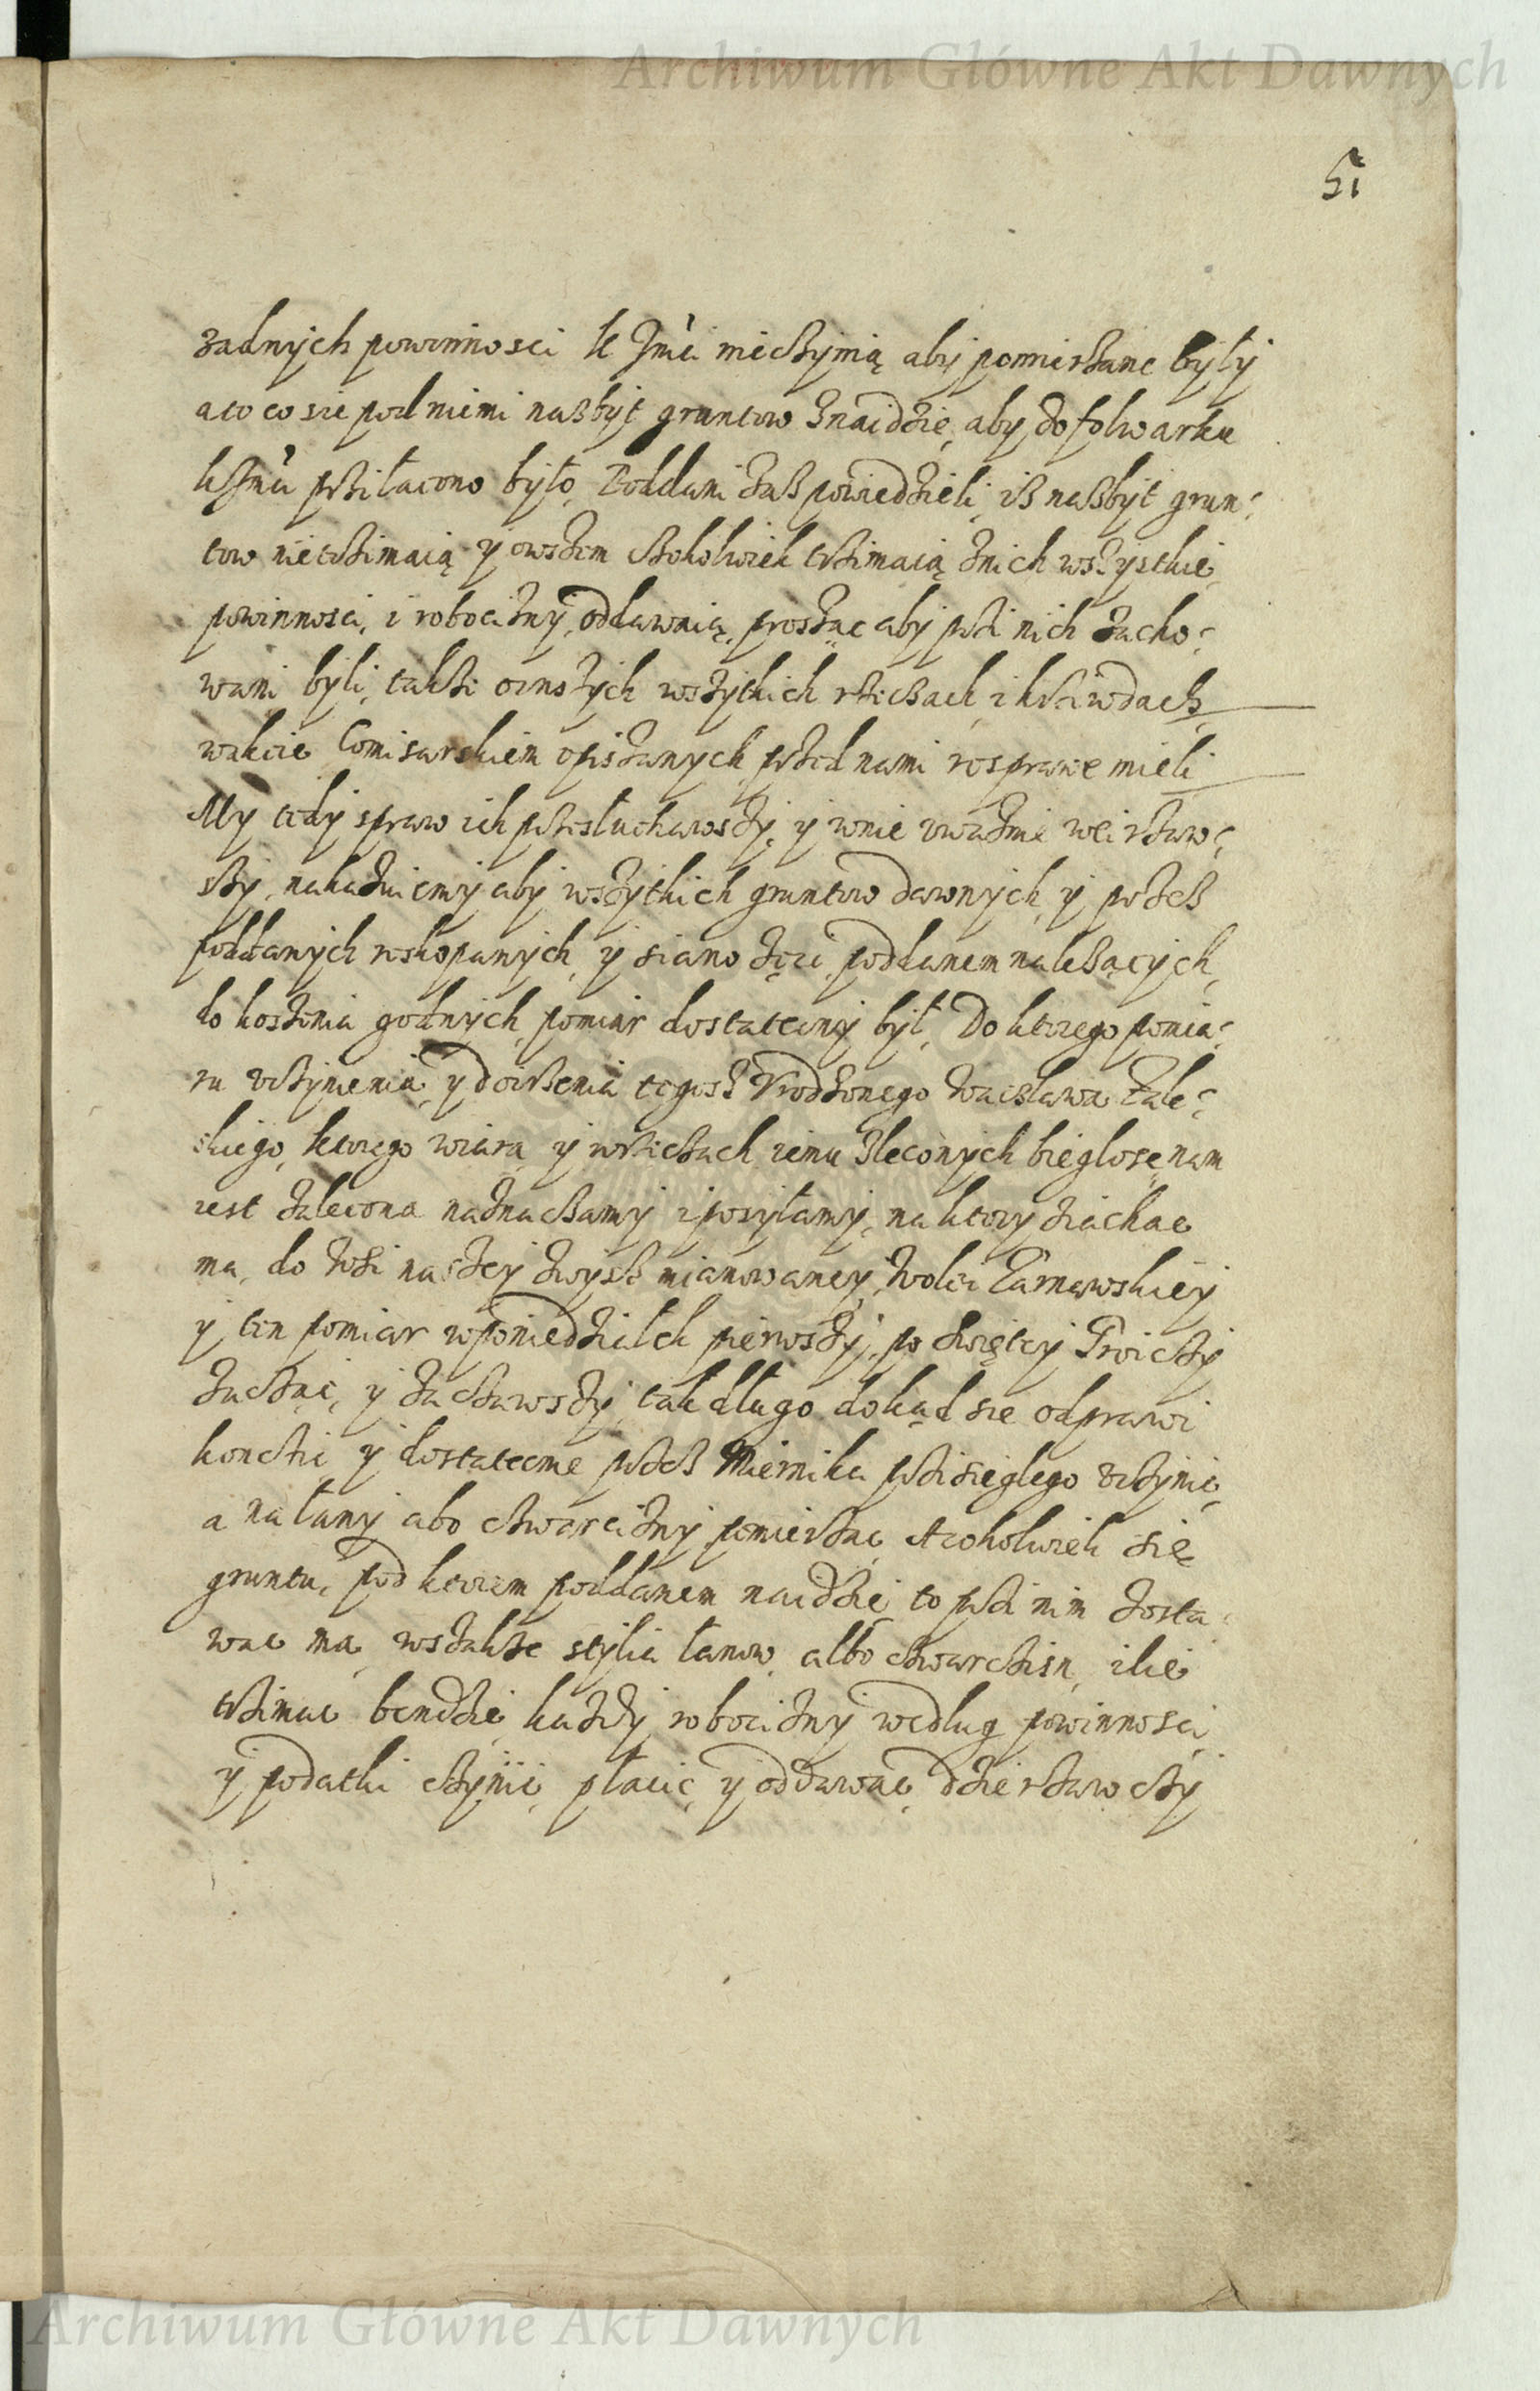 Archiwum Główne Akt Dawnych
51
zadnych powinnosci k Jm̃ci nieczynią aby pomierzane były
a to co sie pod niemi nazbyt gruntow znaidzie, aby do folwarku
k Jm̃ci przilacono było, Poddani zas powiedzieli, iz nazbyt grun:
tow nie trzimaią y owszem czokolwiek trzimaią znich wszystkie
powinnosci, i robocizny, oddawaią, prosząc aby przi nich zacho:
wani byli, takze o inszych wszytkich rzeczach, i krziwdach
wakcie Comisarskiem opiszanych przed nami rosprawe mieli
My tedy spraw ich przesłuchawszy, y wnie vwaznie weirzaw:
szy, nakazuiemy aby wszytkich gruntow dawnych, y przez
poddanych roskopanych, y siano zęci, poddanem nalezących,
do koszenia godnych, pomiar dostateczny był, Do ktorego pomia:
ru vczynienia, y doirzenia tegosz Vrodzonego Waczslawa Zale:
skiego, ktorego wiara y wrzeczach iemu zleconych biegłosc nam
iest zalecona naznaczamy i posyłamy, na ktory ziachac
ma, do Wsi naszey zwysz mianowaney, Wolei Zarnawskiey
y ten pomiar wponiedzialek pierwszy, po Swiętey Troiczy
zacząc, y zaczawszy, tak długo dokąd sie odprawi
konczic y dostatecznie przez Miernika przisieglego vczynic,
a na łany abo czwarcizny pomierzac, A czokolwiek się
gruntu, pod ktorem poddanem naidzie, to przi nim zosta:
wac ma, wszakze stylia łanow, albo czwarczisn, ilie
trzimac bendzie, kazdy robocizny według powinnosci
y podatki czynic, płacic, y oddawac, dzierzawczy
Archiwum Główne Akt Dawnych